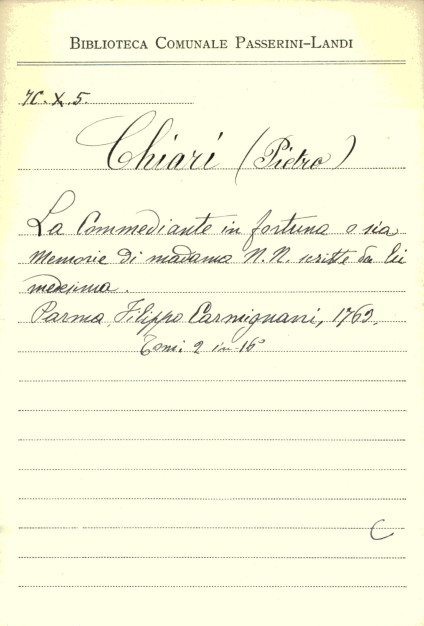 BIBLIOTECA COMUNALE PASSERINI-LANDI
7C.X.5.
Chiari (Pietro)
La Commediante in fortuna o sia
Memorie di madama N.N. scritte da lei
medesima.
Parma, Filippo Carmignani, 1762.
Tomi 2 in-16°
C